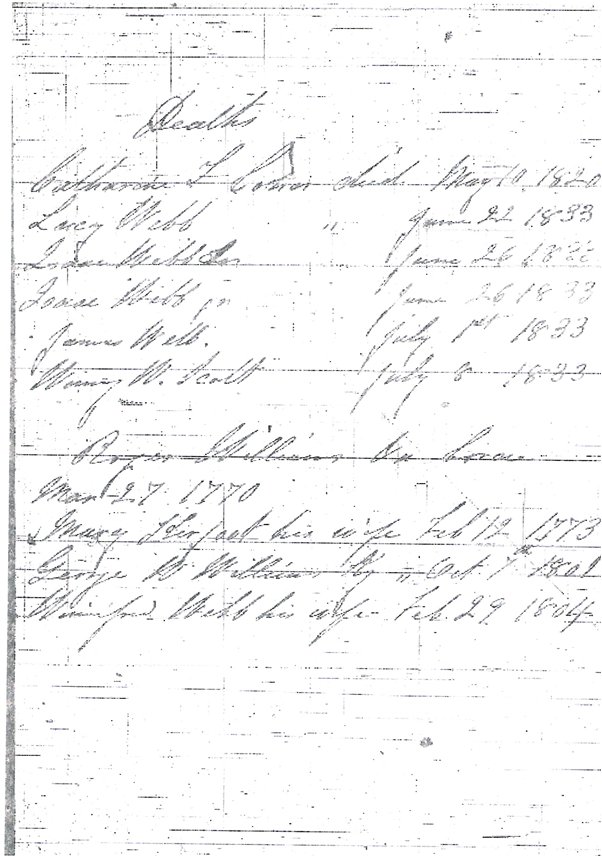 Deaths
Catharine L died May 10 1820
Lucy Webb " June 22 1833
Isaac Webb Sen June 26 1833
Isaac Webb jr June 26 1833
James Webb. July 1st 1833
Winny W. Scott July 8 1833
Roger Williams Sr born
Mar 27 1770
Mary his wife Feb 12 1773
George W Williams " Oct 7th
Winifred Webb his wife Feb 29 1804